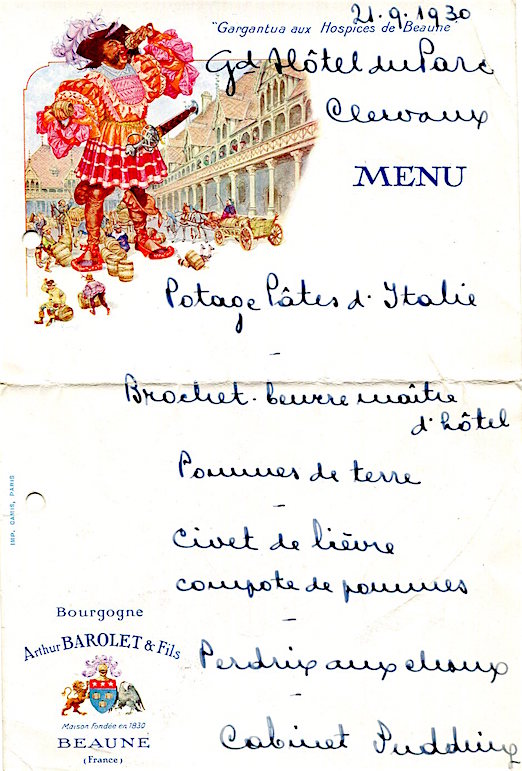 21.9.1930
"Gargantua aux Hospices de Beaune"
Gd Hôtel du Parc
Clervaux
MENU
Potage Pâtes d'Italie
-
Brochet - beurre maître
d'hôtel
Pommes de terre
-
Civet de lièvre
compote de pommes
-
Perdrix aux choux
-
Cabinet Pudding
IMP. CAMIS, PARIS
Bourgogne
Arthur BAROLET & Fils
Maison fondée en 1830
BEAUNE
(France)